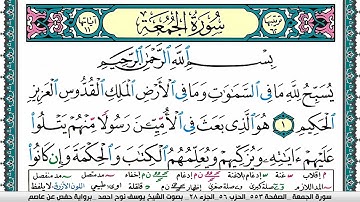 سُورَةُ الجُمُعَةِ
بِسْمِ اللَّهِ الرَّحْمَٰنِ الرَّحِيمِ
يُسَبِّحُ لِلَّهِ مَا فِي السَّمَٰوَٰتِ وَمَا فِي الْأَرْضِ الْمَلِكِ الْقُدُّوسِ الْعَزِيزِ
الْحَكِيمِ ١ هُوَ الَّذِي بَعَثَ فِي الْأُمِّيِّينَ رَسُولًا مِّنْهُمْ يَتْلُوا
عَلَيْهِمْ ءَايَٰتِهِ وَيُزَكِّيهِمْ وَيُعَلِّمُهُمُ الْكِتَٰبَ وَالْحِكْمَةَ وَإِن كَانُوا
سورة الجمعة الصفحة ٥٥٣ الحزب ٥٦ الجزء ٢٨ بصوت الشيخ يوسف نوح احمد برواية حفص عن عاصم